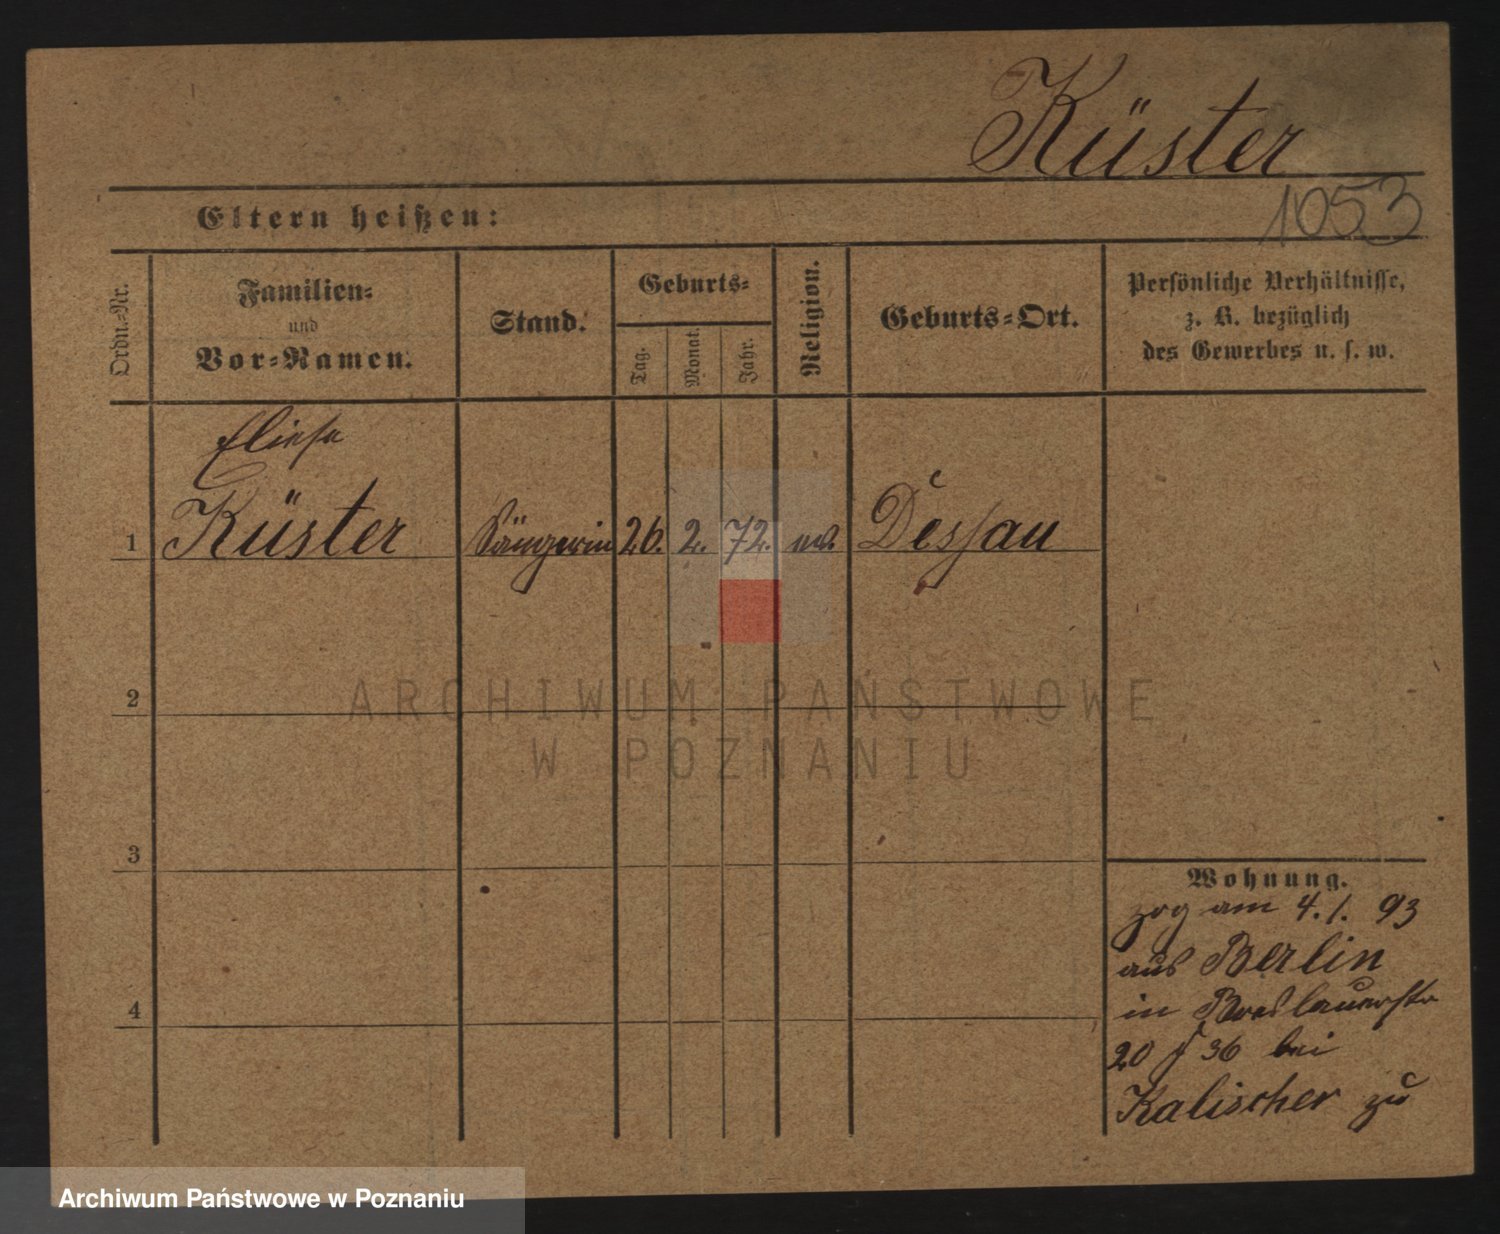 Küster
1053
Eltern heißen:
Ordn.-Nr.
Familien-
und
Vor-Namen.
Stand.
Geburts-
Tag.
Monat.
Jahr.
Religion.
Geburts-Ort.
Persönliche Verhältnisse,
z. B. bezüglich
des Gewerbes u. s. w.
Eliese
1 Küster Sängerin 26. 2. 72. ev. Dessau
2
ARCHIWUM PAŃSTWOWE
W POZNANIU
3
4
Wohnung.
zog am 4. 1. 93
aus Berlin
in Breslauerstr
20 36 bei
Kalischer zu
Archiwum Państwowe w Poznaniu